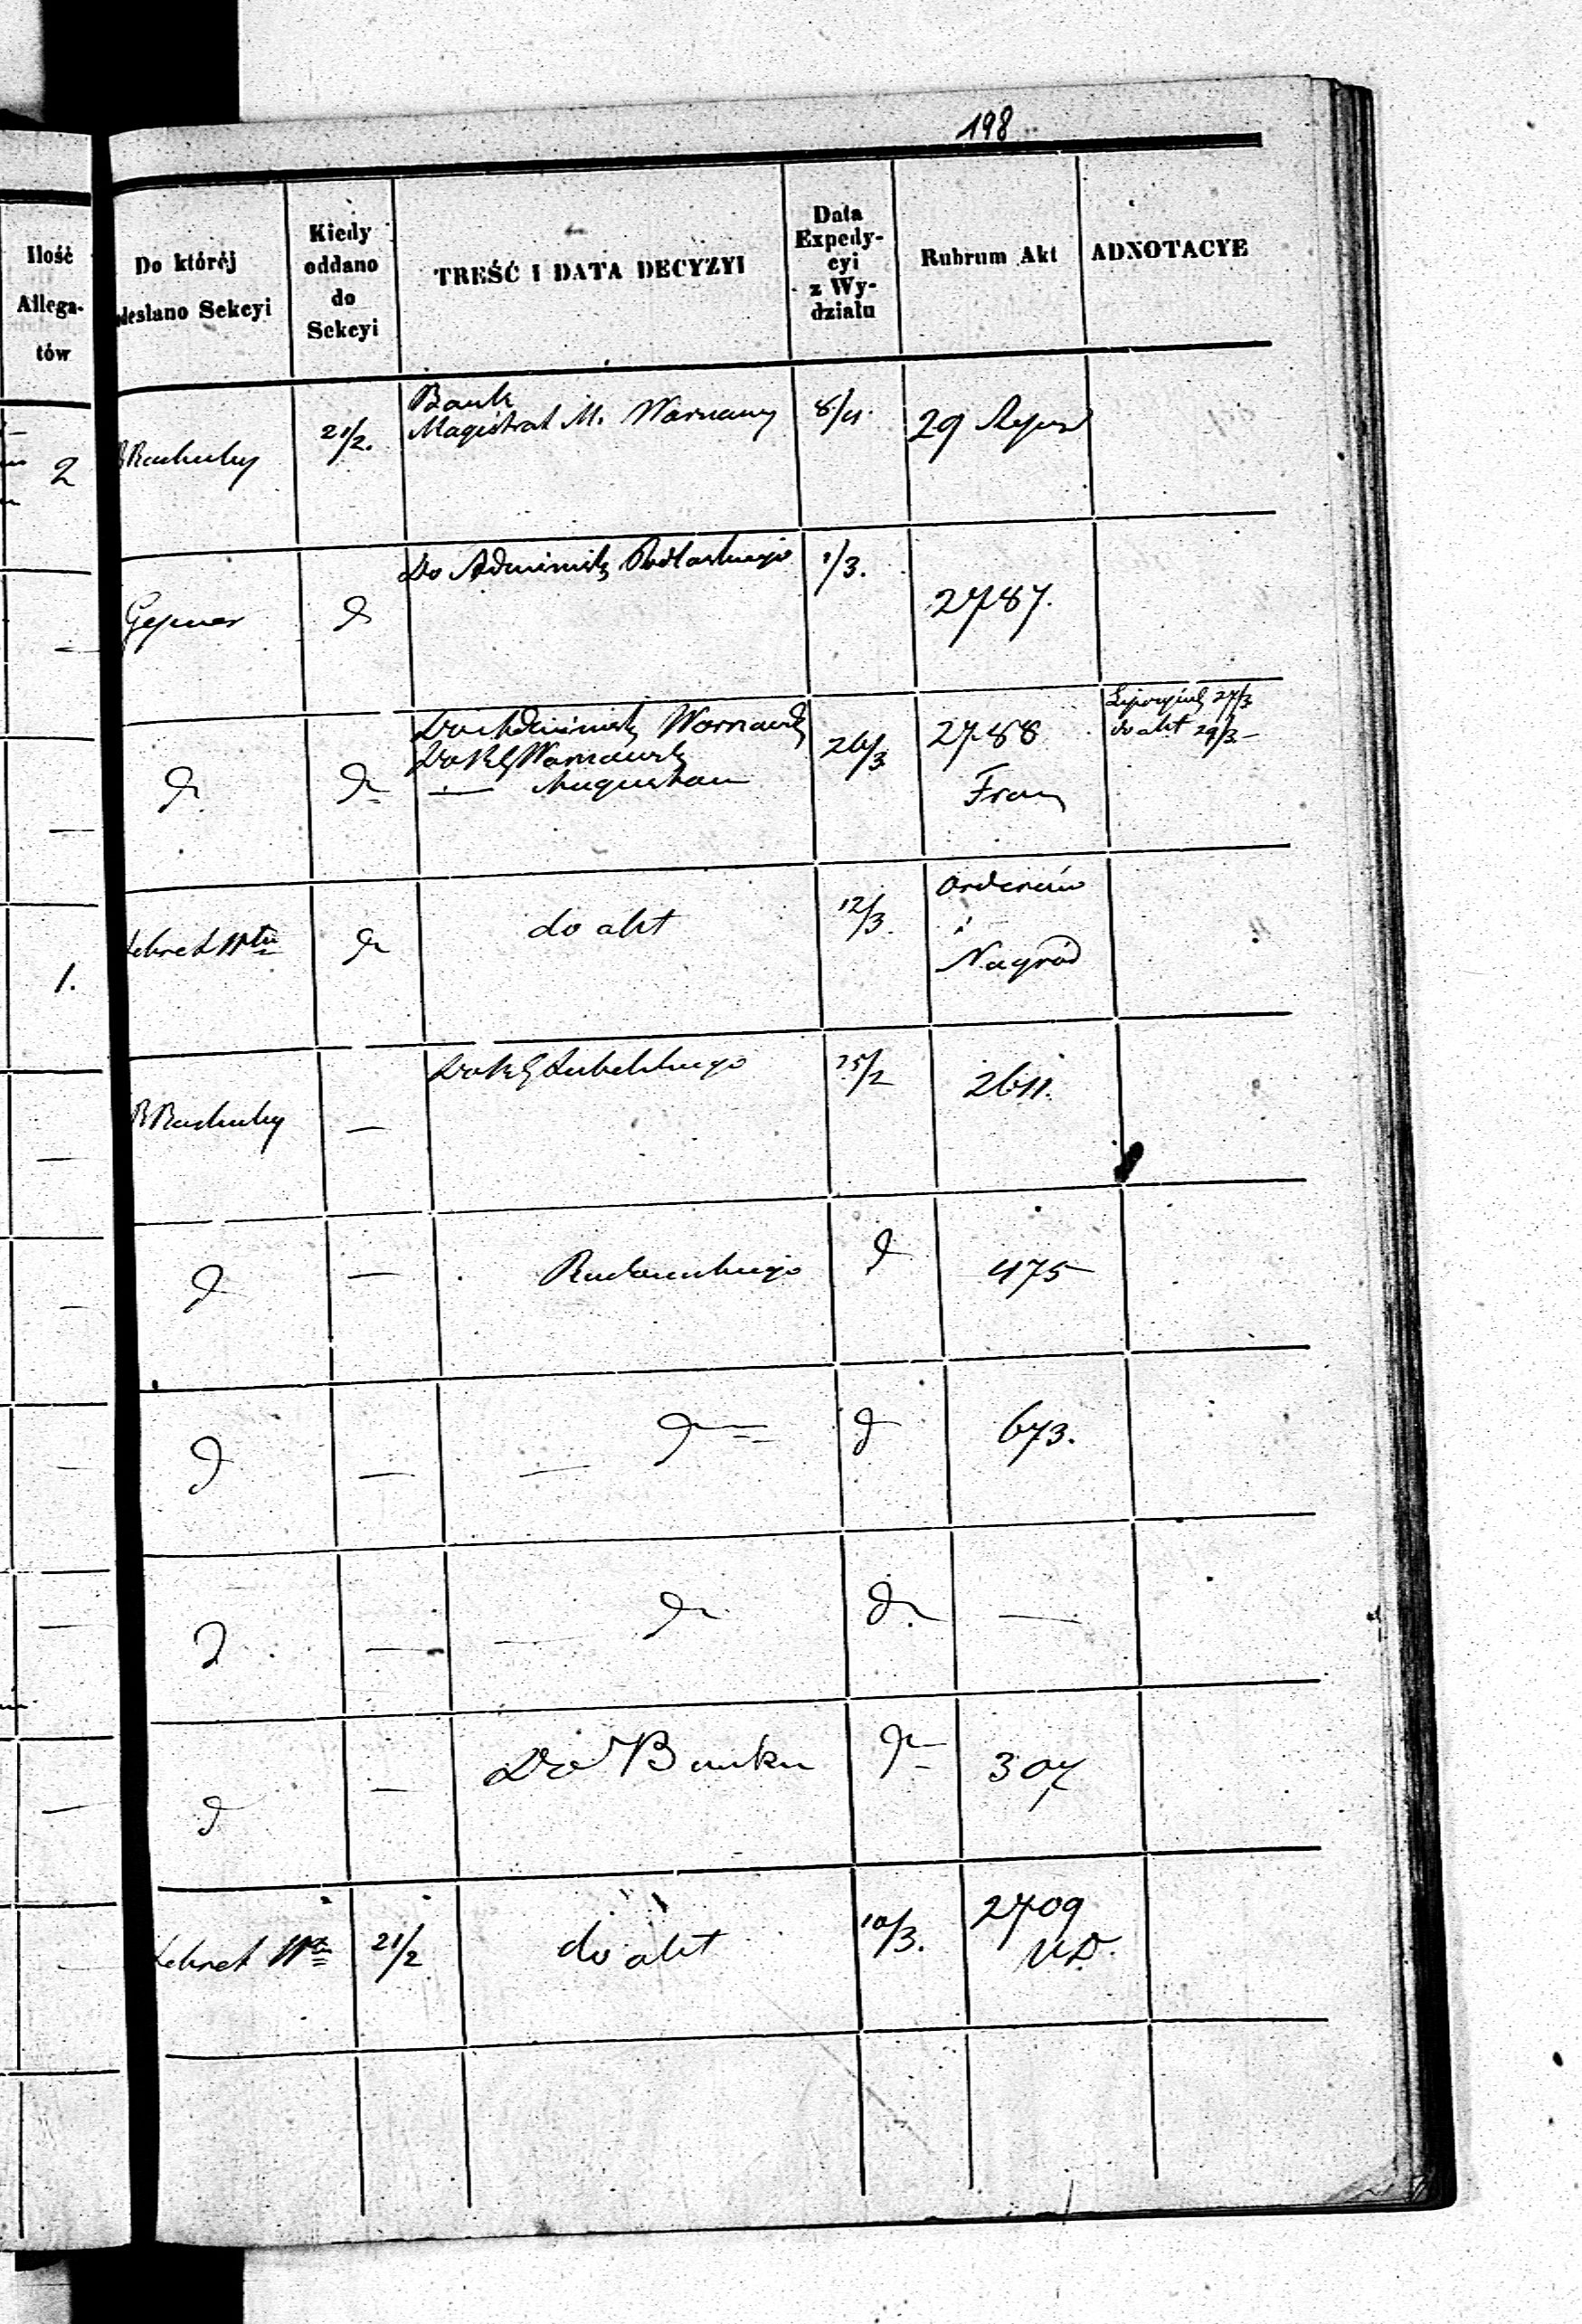 198
Ilość
Allega-
tów
Do któréj
odesłano Sekcyi
Kiedy
oddano
do
Sekcyi
TREŚĆ I DATA DECYZYI
Data
Expedy-
cyi
z Wy-
działu
Rubrum Akt
ADNOTACYE
2
21/2.
Bank
Magistrat M. Warszawy
8/4.
29
Do Administr Podlaskiego
1/3.
d
2787.
Do Administr Warszaws
Do RG Warszaws
— Augustow
26/3
2788
Fran
27/3
do akt 29/3 —
d
d
1.
Sekret
d
do akt
12/3.
Orderów
i
Nagród
Do RG Lubelskiego
25/2
2611.
—
d
—
Radomskiego
d
475
d
—
— d
d
673.
d
—
— d
d
—
d
—
Do Banku
d
307
Sekret
21/2
do akt
10/3.
2709